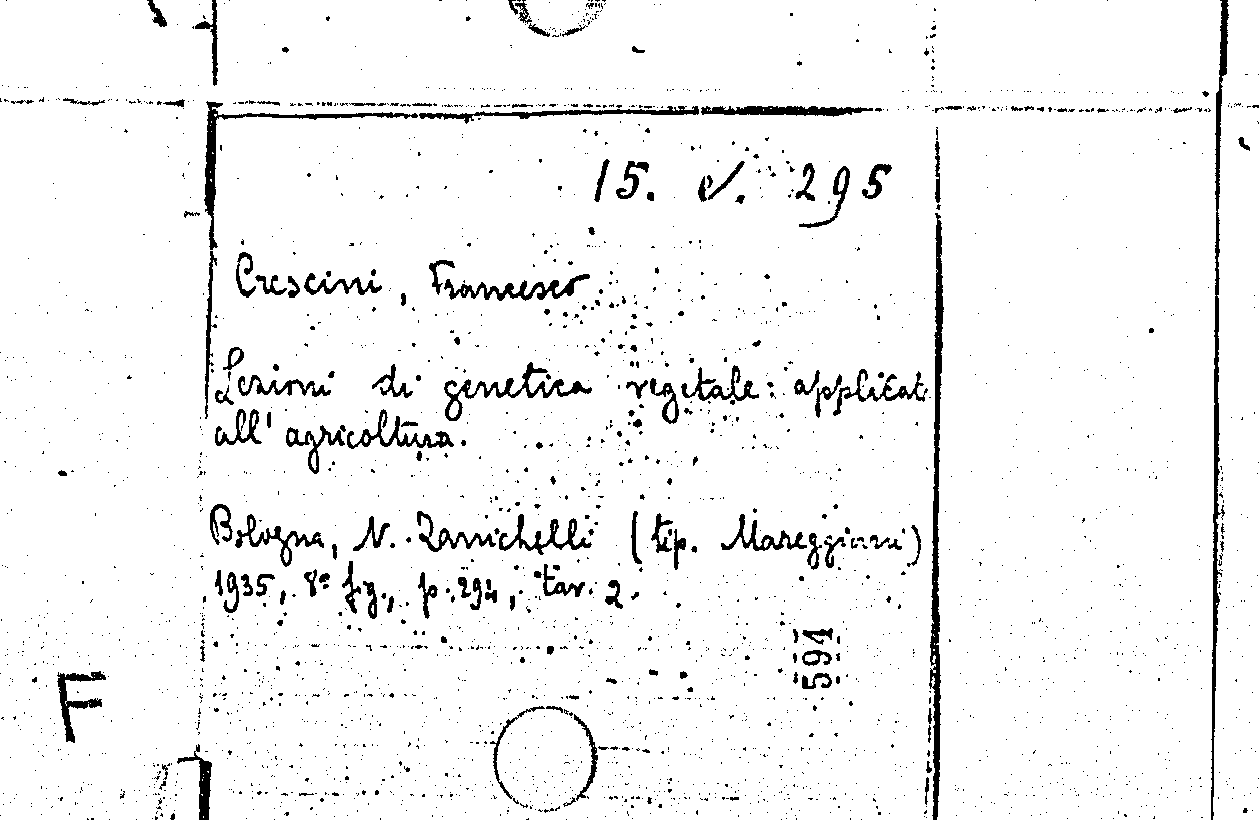 15. V. 295
Crescini, Francesco
Lezioni di genetica vegetale: applicat
all' agricoltura.
Bologna, N. Zanichelli (tip. Mareggiani)
1935, 8° fig., p. 294, tav. 2.
594
F